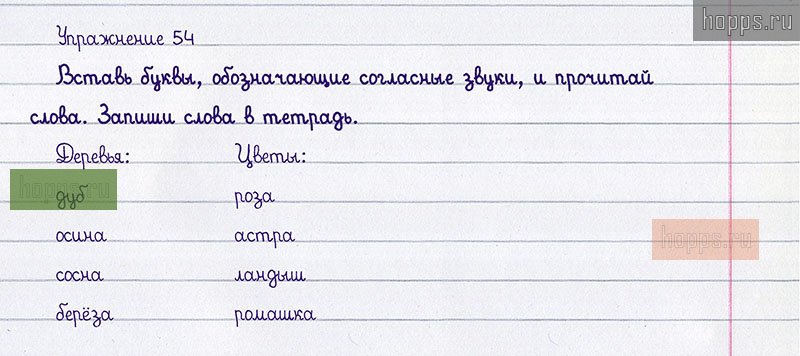 hopps.ru
Упражнение 54
Вставь буквы, обозначающие согласные звуки, и прочитай
слова. Запиши слова в тетрадь.
Деревья: Цветы:
hopps.ru
дуб роза
осина астра
hopps.ru
сосна ландыш
берёза ромашка